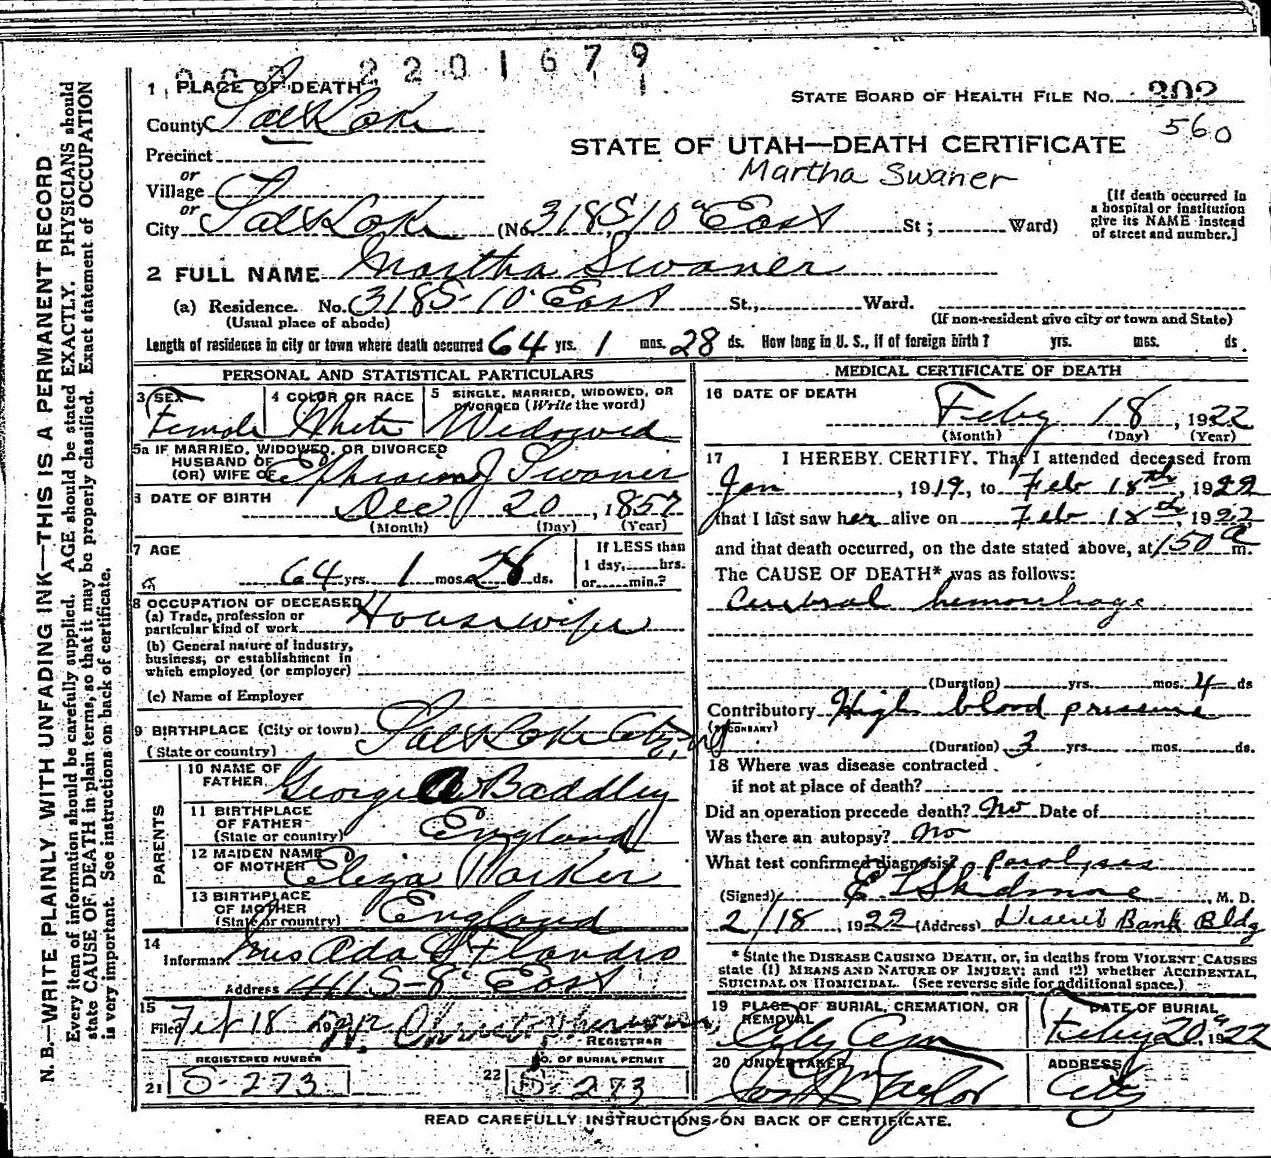 2201679
1 PLACE OF DEATH
STATE BOARD OF HEALTH FILE No. 302
County Salt Lake
560
STATE OF UTAH—DEATH CERTIFICATE
Precinct
Martha Swaner
or
Village
or
City Salt Lake (No. 318 S 10" East St; Ward)
[If death occurred in
a hospital or institution
give its NAME instead
of street and number.]
2 FULL NAME Martha Swaner
(a) Residence. No. 318 S-10" East St., Ward.
(Usual place of abode) (If non-resident give city or town and State)
Length of residence in city or town where death occurred 64 yrs. 1 mos. 28 ds. How long in U. S., if of foreign birth? yrs. mos. ds.
PERSONAL AND STATISTICAL PARTICULARS
3 SEX Female
4 COLOR OR RACE White
5 SINGLE, MARRIED, WIDOWED, OR
DIVORCED (Write the word)
Widowed
5a IF MARRIED, WIDOWED, OR DIVORCED
HUSBAND OF
(OR) WIFE OF Ephraim J Swaner
6 DATE OF BIRTH Dec 20, 1857
(Month) (Day) (Year)
7 AGE
64 yrs. 1 mos. 28 ds.
If LESS than
1 day, hrs.
or min.?
8 OCCUPATION OF DECEASED
(a) Trade, profession or
particular kind of work Housewife
(b) General nature of industry,
business, or establishment in
which employed (or employer)
(c) Name of Employer
9 BIRTHPLACE (City or town) Salt Lake City, Ut
(State or country)
PARENTS
10 NAME OF
FATHER George Baddley
11 BIRTHPLACE
OF FATHER
(State or country) England
12 MAIDEN NAME
OF MOTHER Eliza
13 BIRTHPLACE
OF MOTHER
(State or country) England
14
Informant Mrs Ada S Flandro
Address 411 S-8" East
15
Filed Feb 18
REGISTRAR
REGISTERED NUMBER
21 S-273
NO. OF BURIAL PERMIT
22 D-273
MEDICAL CERTIFICATE OF DEATH
16 DATE OF DEATH
Feby 18, 1922
(Month) (Day) (Year)
17 I HEREBY CERTIFY. That I attended deceased from
Jan, 1919, to Feb 18th, 1922
that I last saw her alive on Feb 18th, 1922
and that death occurred, on the date stated above, at 150 a m.
The CAUSE OF DEATH* was as follows:
Cerebral hemorrhage
(Duration) yrs. mos. 4 ds
Contributory High blood pressure
(SECONDARY)
(Duration) 3 yrs. mos. ds.
18 Where was disease contracted
if not at place of death?
Did an operation precede death? No Date of
Was there an autopsy? No
What test confirmed diagnosis? paralysis
(Signed) E T Skidmore, M. D.
2/18, 1922 (Address) Deseret Bank Bldg
* State the DISEASE CAUSING DEATH, or, in deaths from VIOLENT CAUSES
state (1) MEANS AND NATURE OF INJURY; and (2) whether ACCIDENTAL,
SUICIDAL OR HOMICIDAL. (See reverse side for additional space.)
19 PLACE OF BURIAL, CREMATION, OR
REMOVAL
City Cem
DATE OF BURIAL
Feby 20", 1922
20 UNDERTAKER
Taylor
ADDRESS
City
READ CAREFULLY INSTRUCTIONS ON BACK OF CERTIFICATE.
N. B.—WRITE PLAINLY WITH UNFADING INK—THIS IS A PERMANENT RECORD
Every item of information should be carefully supplied. AGE should be stated EXACTLY. PHYSICIANS should
state CAUSE OF DEATH in plain terms, so that it may be properly classified. Exact statement of OCCUPATION
is very important. See instructions on back of certificate.